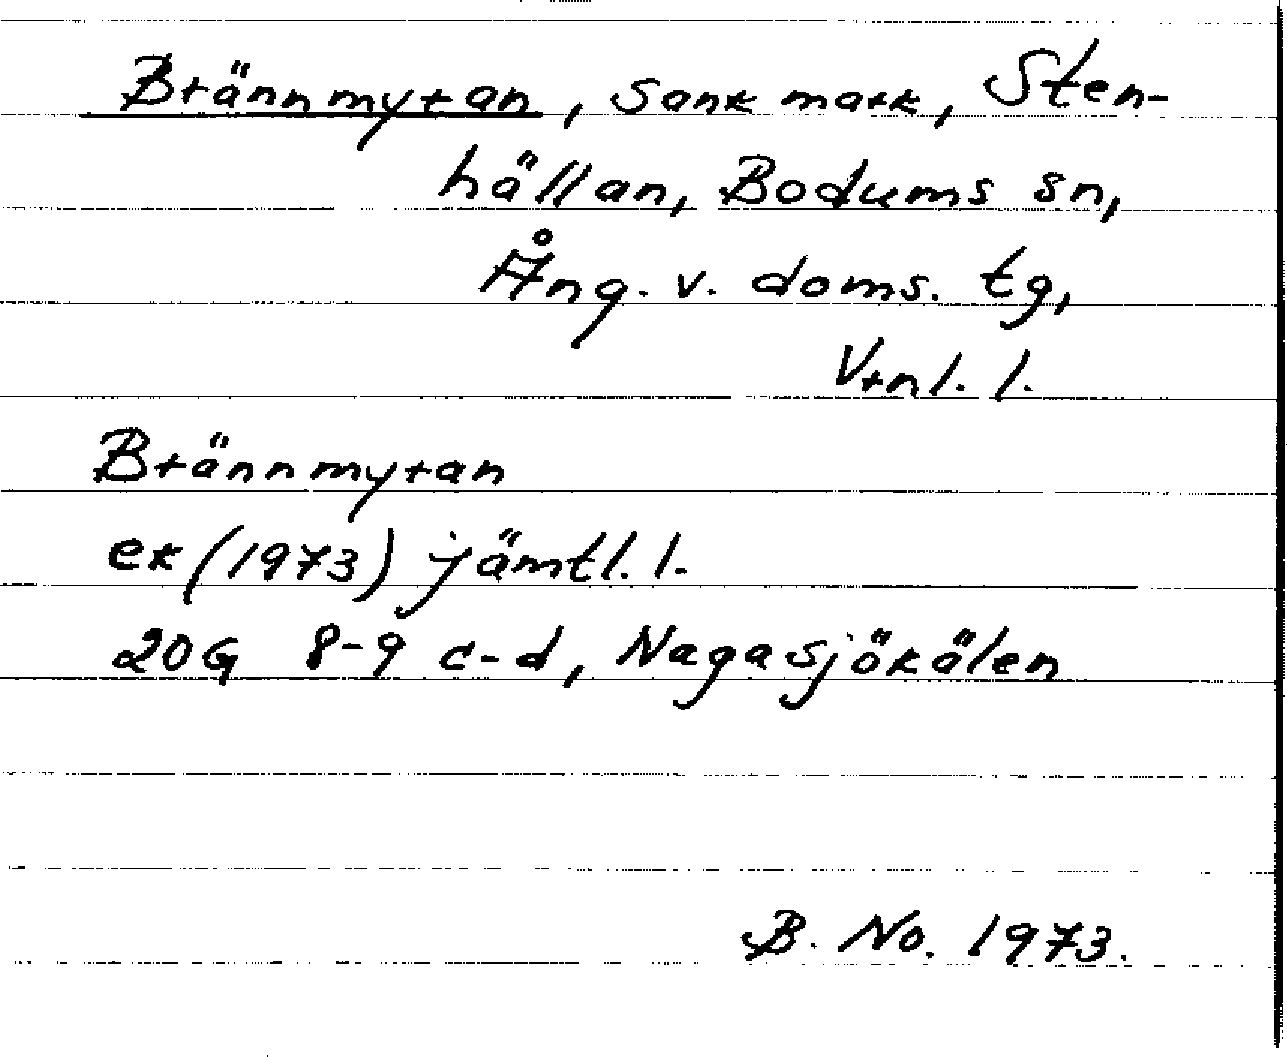 Brännmyran, sankmark, Sten-
hällan, Bodums sn,
Ång. v. doms. tg,
Vrnl. l.
Brännmyran
ek (1973) jämtl. l.
20G 8-9 c-d, Nagasjökälen
B. No. 1973.